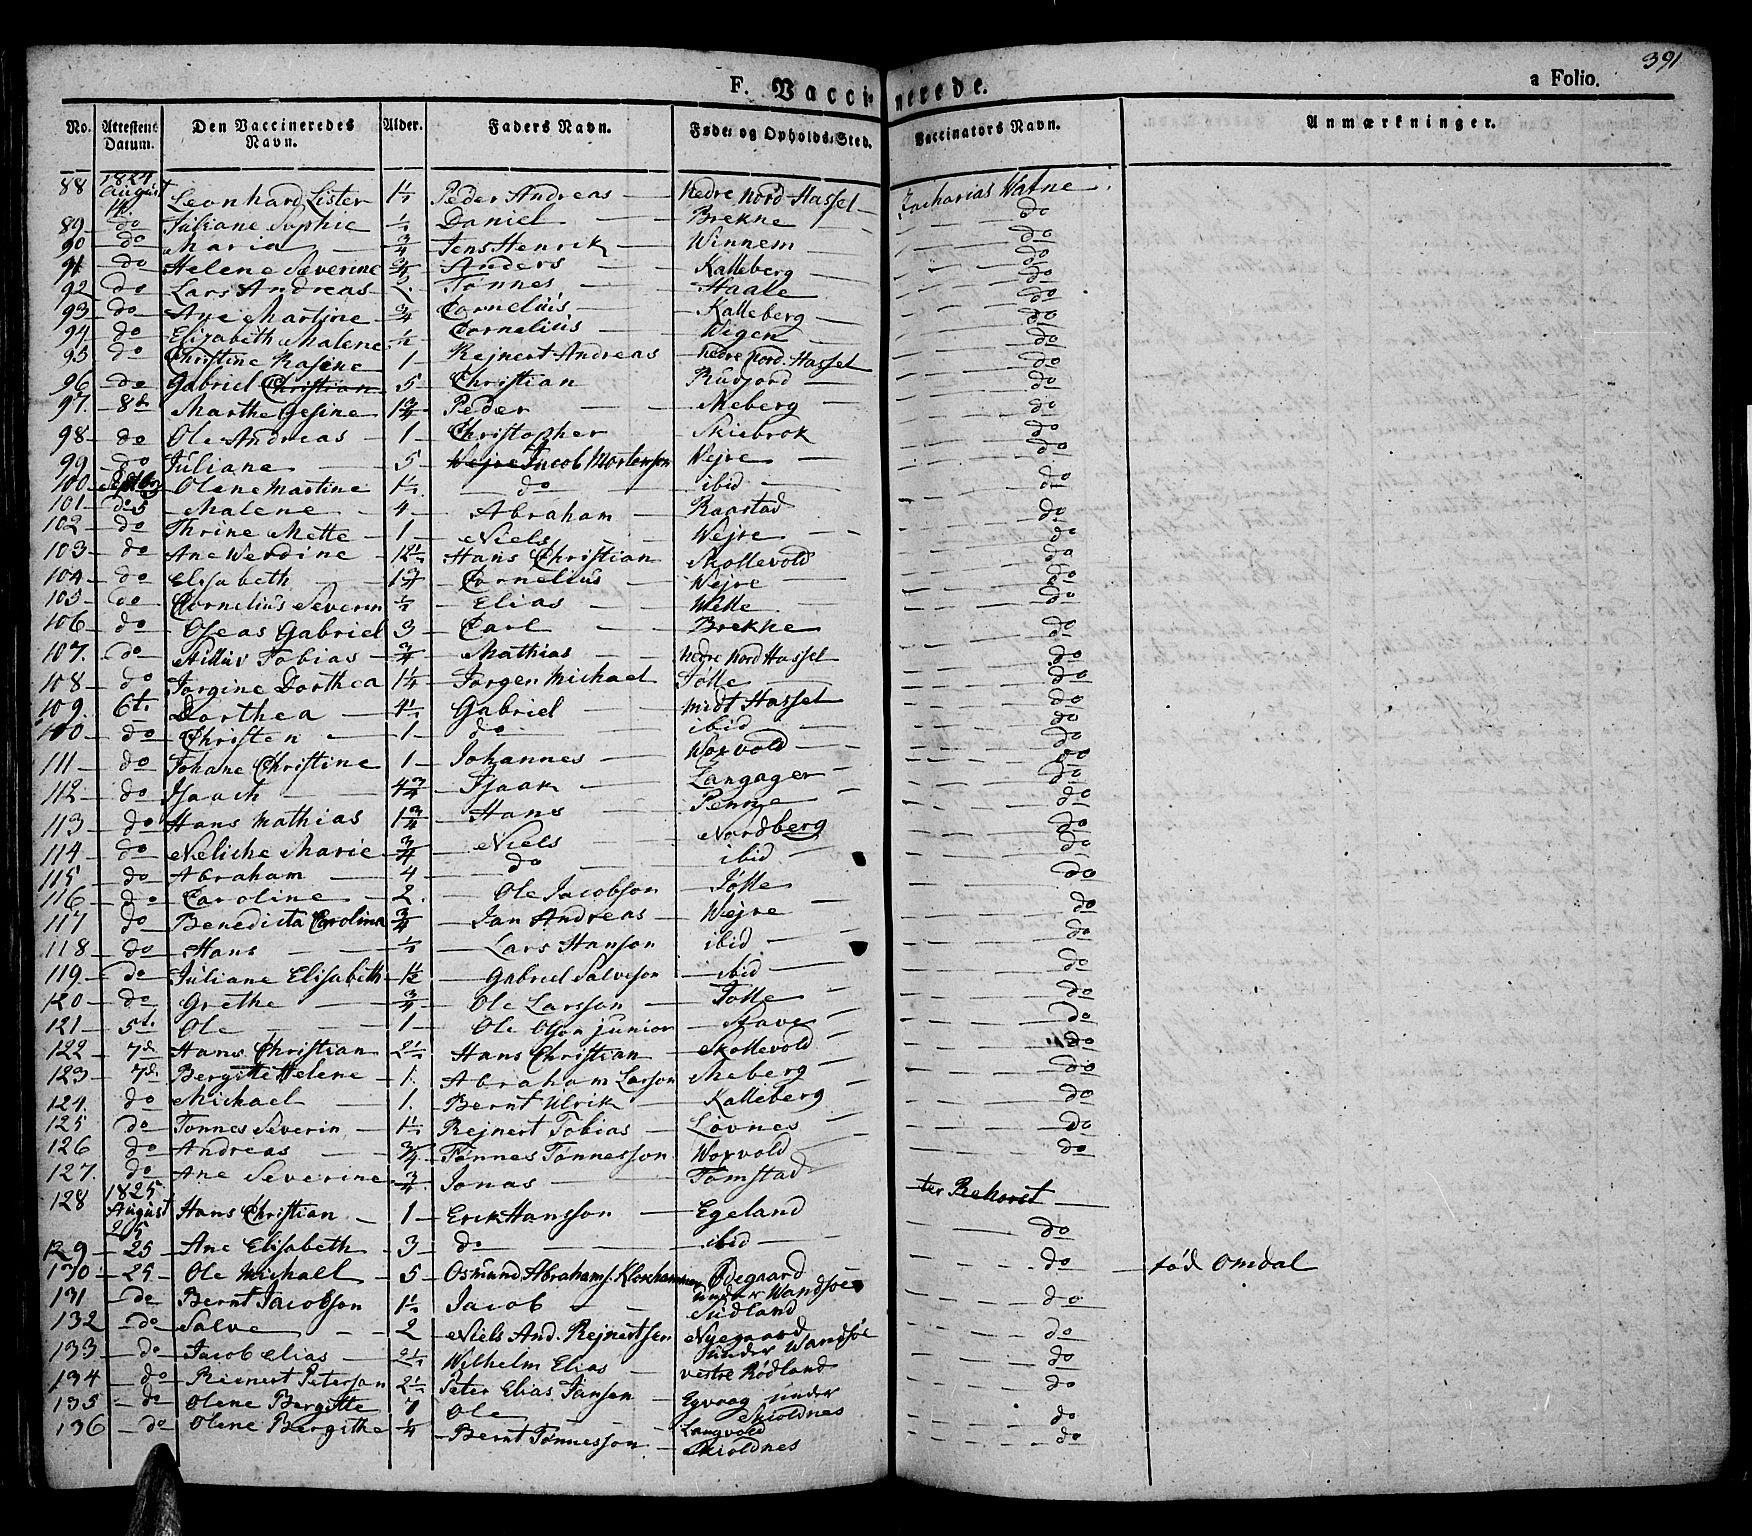 391
F. Vaccinerede.
a Folio.
No. Attestens Datum. Den Vaccineredes Navn. Alder. Faders Navn. Føde- og Opholds-Sted. Vaccinators Navn. Anmærkninger.
88 1824 August 14. Leonhard Lister 1½ Peder Andreas Nedre Nord Hassel Zacharias Vatne
89 do Juliane Sophie ½ Daniel Brekne do
90 do Maria ¾ Jens Henrik Winnem do
91 do Helene Severine ¾ Anders Kalleberg do
92 do Lars Andreas Tønnes Haale do
93 do Ane Martine ¾ Cornelius Kalleberg do
94 do Elizabeth Malene ½ Cornelius Wigen do
95 do Christine Rasine 1 Rejnert Andreas Nedre Nord Hassel do
96 do Gabriel Christian 5 Christian Rudjord do
97. 8de Marthe Gesine 1¾ Peder Meberg do
98 do Ole Andreas 1 Christopher Skiebrok do
99 do Juliane 5 Wejre Jacob Mortenson Wejre do
100 Septbr Olene Martine 1½ do ibid do
101 do 5 Malene 4 Abraham Raastad do
102 do Thrine Mette 1 Niels Wejre do
103 do Ane Werdine 12½ Hans Christian Skollevold do
104 do Elisabeth 1¾ Cornelius Wejre do
105 do Cornelius Severin ½ Elias do
106 do Oseas Gabriel 3 Carl Brekne do
107. do Nillus Tobias ¾ Mathias Nedre Nord Hassel do
108 do Jørgine Dorthea 1¼ Jørgen Michael Jølle do
109. 6te Dorthea 4½ Gabriel Midt Hassel do
110 do Christen 1 do ibid do
111 do Johane Christine 1 Johannes Woxvold do
112 do Isaach 4¾ Isaak Langager do
113 do Hans Mathias 1¾ Hans Penne do
114 do Neliche Marie ¾ Niels Nordberg do
115 do Abraham 4 do ibid do
116 do Caroline 2. Ole Jacobson Jølle do
117 do Benedicta Carolina ¾ Jan Andreas Wejre do
118 do Hans ½ Lars Hanson ibid do
119. do Juliane Elisabeth 1½ Gabriel Salveson ibid do
120 do Grethe ¾ Ole Larsson Jølle do
121 5te Ole 1 Ole Olson junior Stave do
122 7de Hans Christian 2½ Hans Christian Skollevold do
123 7de Bergitte Helene 1. Abraham Larson Meberg do
124. do Michael 1. Bernt Ulrik Kalleberg do
125 do Tønnes Severin 1½ Rejnert Tobias Løvnes do
126 do Andreas ¾ Tønnes Tønnesson Woxvold do
127. do Ane Severine ¾ Jonas Tomstad
128 1825 August 25 Hans Christian 1 Erik Hansson Egeland ter Rehorst
129 25 Ane Elisabeth 3 do ibid do
130 25 Ole Michall 5 Osmund Abrahams. Klokhammer Ødegaard under Wandsøe do fød Omdal
131 do Bernt Jacobson 1½ Jacob Sudland do
132 do Salve 2 Niels And. Rejnertsen Nyegaard under Wandsøe do
133 do Jacob Elias 2½ Wilhelm Elias vestre Rødland do
134 do Reenert Peterson 2½ Peter Elias Jansen Egvaag under Skioldnes do
135 do Olene Bergitte 7 Ole Langvold do
136 do Olene Bergithe ¼ Bernt Tønnesson Skioldnes do